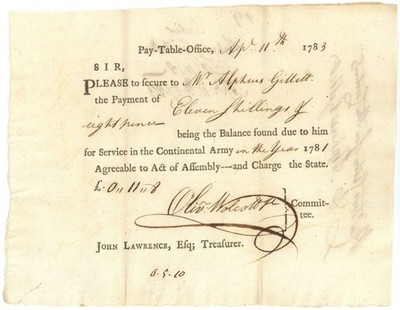 Pay-Table-Office, Apl. 11th 1783
SIR,
PLEASE to secure to Mr Alpheus Gillett
the Payment of Eleven Shillings &
eight pence
being the Balance found due to him
for Service in the Continental Army in the Year 1781
Agreeable to Act of Assembly—and Charge the State.
£. 0,, 11,, 8
Oliv. Wolcott Jr } Commit-
tee.
JOHN LAWRENCE, Esq; Treasurer.
0.5.10